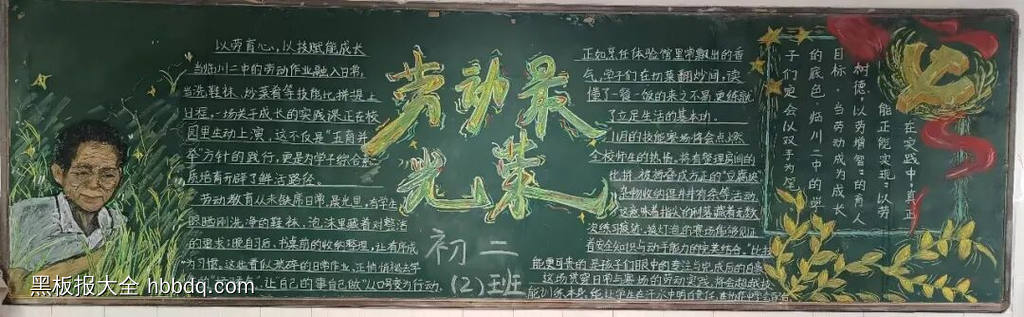 以劳育心、以技赋能成长
当临川二中的劳动作业融入日常,
当洗鞋袜、炒菜肴等技能比拼提上
日程,一场关于成长的实践课正在校
园里生动上演,这不仅是“五育并
举”方针的践行,更是为学子综合素
质培育开辟了鲜活路径。
劳动教育从未缺席日常,晨光里,有学生
眼晒刚洗净的鞋袜,泡沫里藏着对整洁
的要求;晚自习后,书桌前的收纳整理,让有序成
为习惯,这些看似琐碎的日常作业,正悄悄
让“自己的事自己做”从口号变为行动。
劳动最
光荣
初二
(2)班
正如烹饪体验馆里常飘出的香
气,学子们在切菜翻炒间,读
懂了一餐一饭的来之不易,更练就
了立足生活的基本功。
11月的技能赛场将会点燃
全校师生的热情,将有整理房间的
比拼,被褥叠成方正的“豆腐块”
杂物收纳得井井有条等活动
这意味着指尖的利落藏着无数
次练习积淀,换灯泡的赛场能够见证
着安全知识与动手能力的完美结合。“比技
能更可贵的是孩子们眼中的专注与完成后的自豪
这场贯穿日常与赛场的劳动实践,将会超越技
在实践中,真正
能正能实现“以劳
树德,以劳增智”的育人
目标。当劳动成为成长
的底色,临川二中的学
子们定会以双手为笔
黑板报大全 hbbdq.com